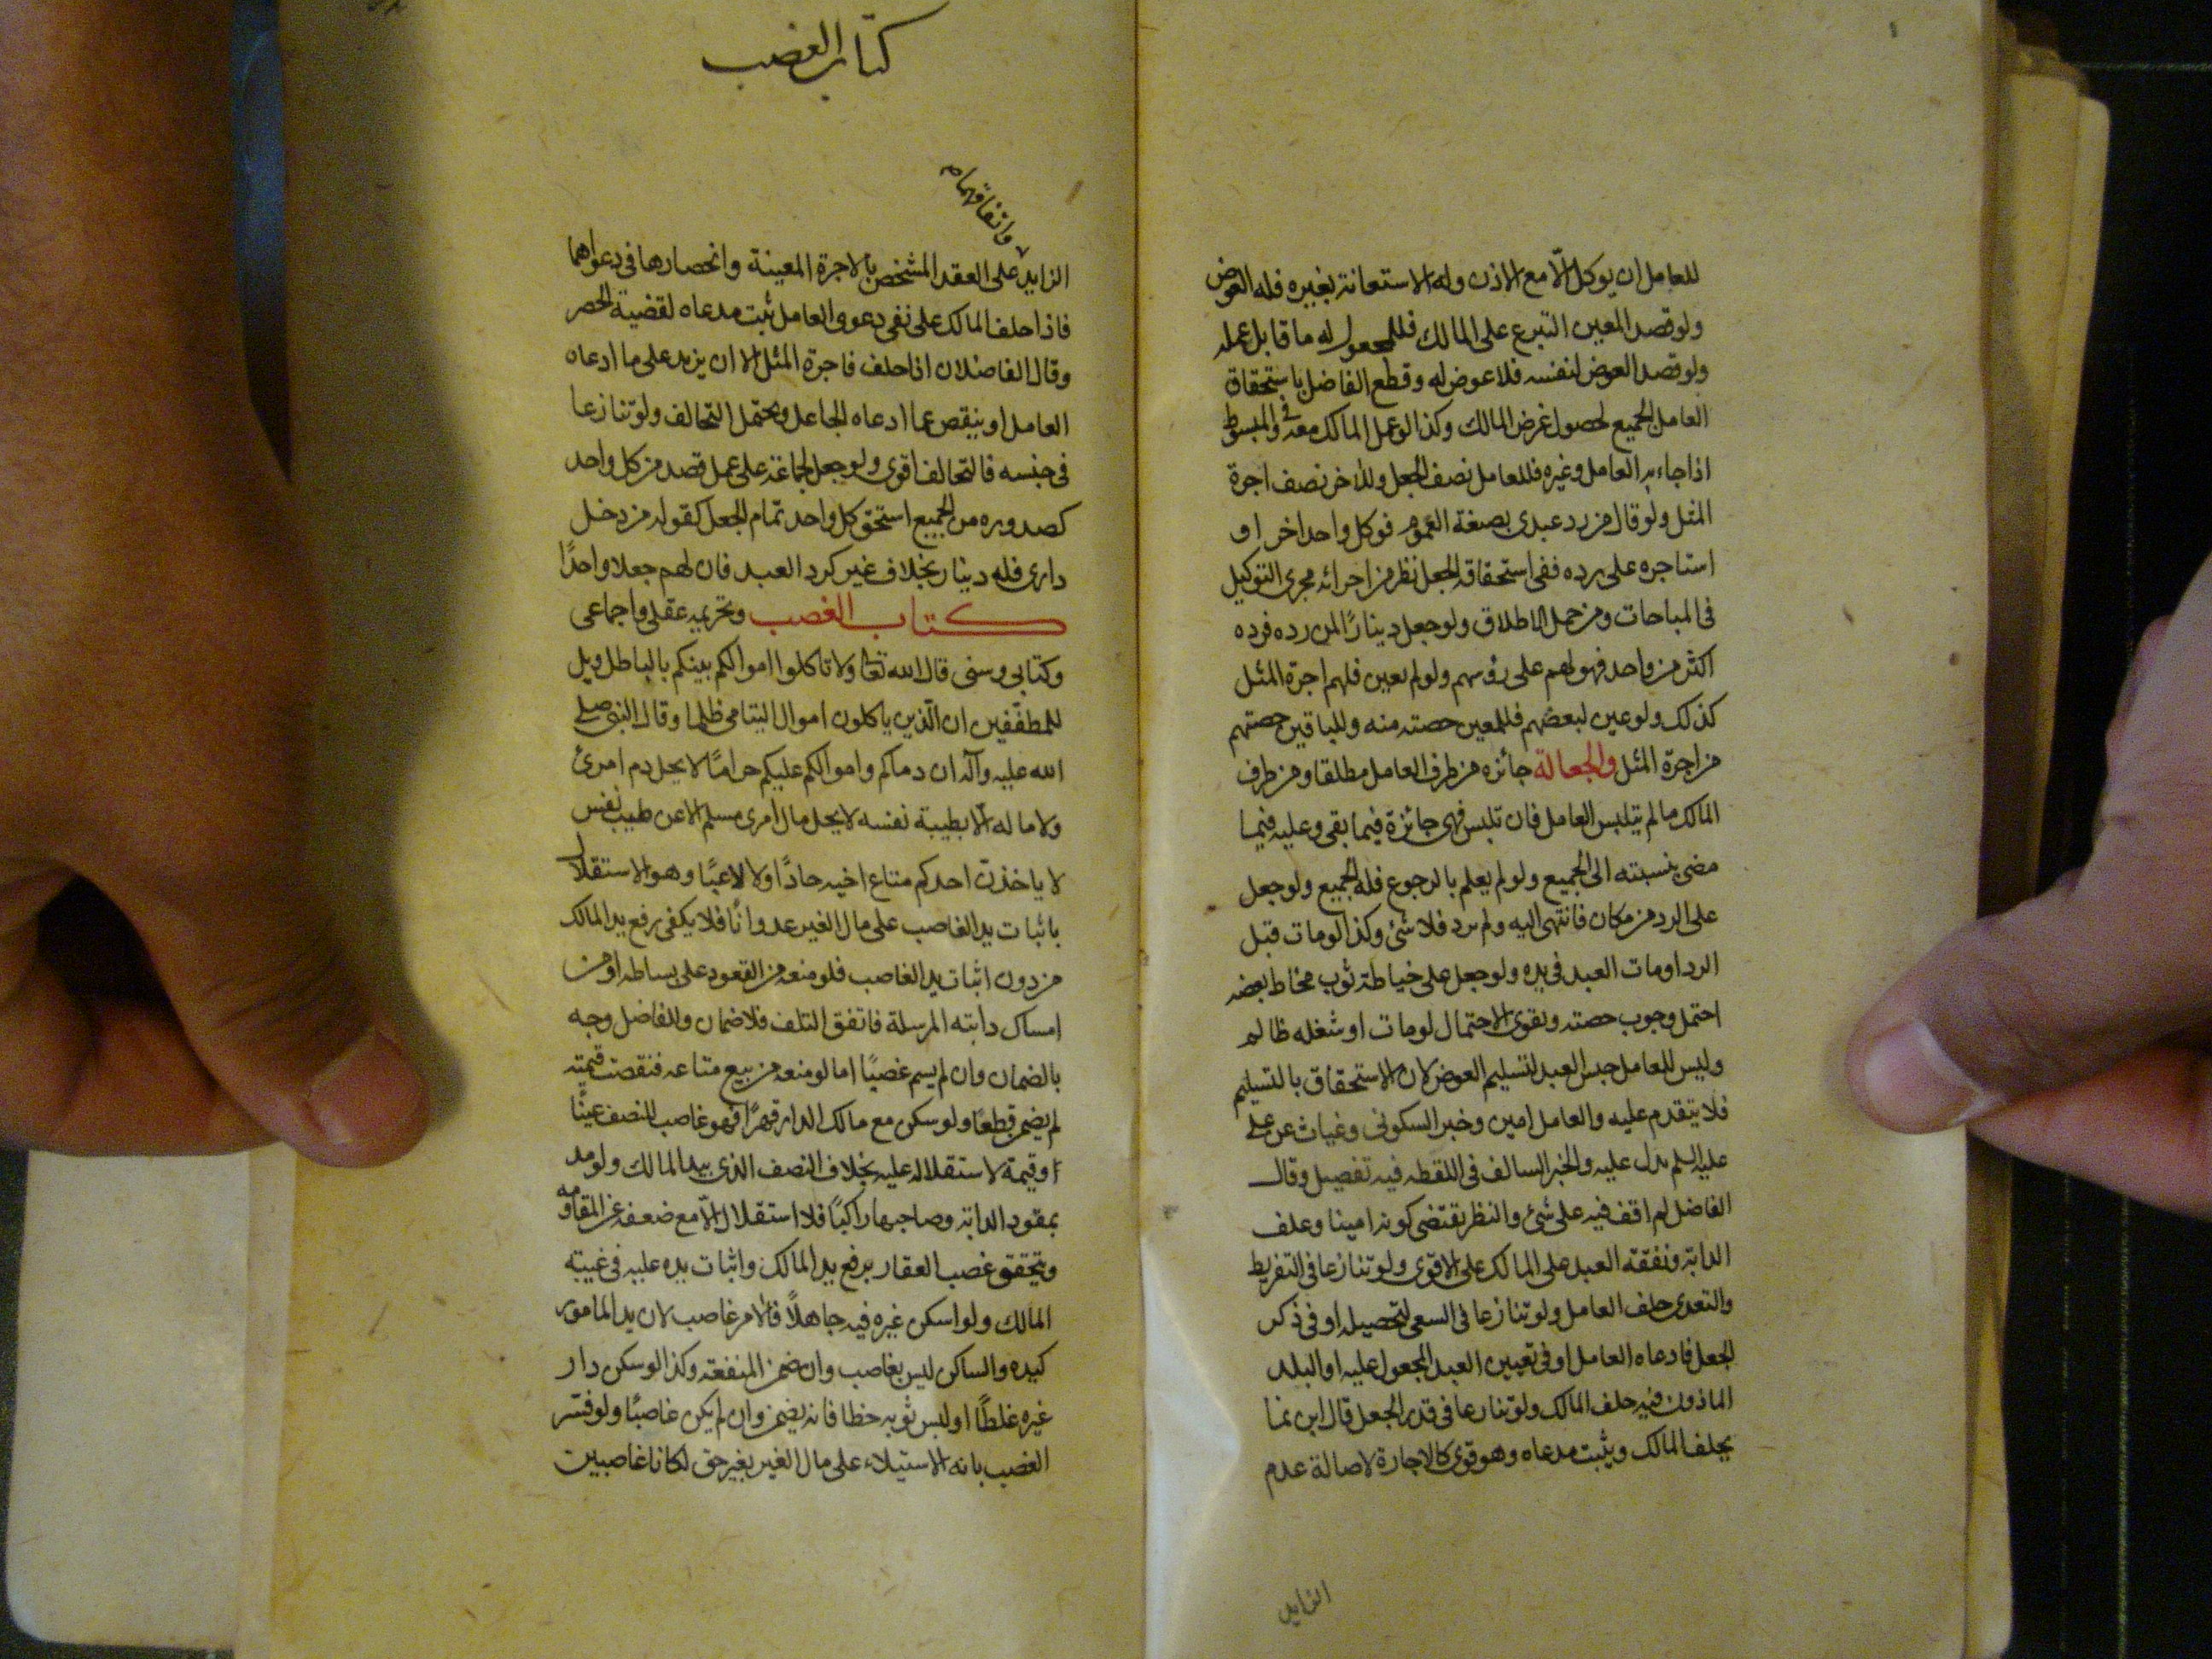 للعامل ان يوكل الّا مع الاذن وله الاستعانة بغيره فله العوض
ولو قصد المعين التبرع على المالك فللمجعول له ما قابل عمله
ولو قصد العوض لنفسه فلا عوض له وقطع الفاضل باستحقاق
العامل الجميع لحصول غرض المالك وكذا لو عمل المالك معه وفي المبسوط
اذا جاء به العامل وغيره فللعامل نصف الجعل وللاخر نصف اجرة
المثل ولو قال من رد عبدي بصيغة العموم فوكل واحد اخر او
استاجره على رده ففي استحقاقه الجعل نظر من اجرائه مجرى التوكيل
في المباحات ومن حمل الاطلاق ولو جعل دينارًا لمن رده فرده
اكثر من واحد فهو لهم على رؤسهم ولو لم يعين فلهم اجرة المثل
كذلك ولو عين لبعضهم فللمعين حصته منه وللباقين حصتهم
من اجرة المثل والجعالة جائزه من طرف العامل مطلقا ومن طرف
المالك ما لم يتلبس العامل فان تلبس فهي جائزة فيما بقى وعليه فيما
مضى بنسبته الى الجميع ولو لم يعلم بالرجوع فله الجميع ولو جعل
على الرد من مكان فانتهى اليه ولم يرد فلا شئ وكذا لو مات قبل
الرد او مات العبد في يده ولو جعل على خياطة ثوب فخاط بعضه
احتمل وجوب حصته ويقوى الاحتمال لو مات او شغله ظالم
وليس للعامل حبس العبد لتسليم العوض لان الاستحقاق بالتسليم
فلا يتقدم عليه والعامل امين وخبر السكوني وغياث عن علي
عليه السلم يدل عليه والخبر السالف في اللقطه فيه تفصيل وقال
الفاضل لم اقف فيه على شئ والنظر يقتضي كونه امينا وعلف
الدابة ونفقة العبد على المالك على الاقوى ولو تنازعا في التفريط
والتعدي حلف العامل ولو تنازعا في السعي لتحصيله او في ذكر
الجعل فادعاه العامل او في تعيين العبد المجعول عليه او البلد
الماذون فيه حلف المالك ولو تنازعا في قدر الجعل قال ابن نما
يحلف المالك ويثبت مدعاه وهو قوي كالاجارة لاصالة عدم
الزايد
كتاب الغصب
واتفاقهما م
الزايد على العقد المشخص بالاجرة المعينة وانحصارها في دعواهما
فاذا حلف المالك على نفي دعوى العامل ثبت مدعاه لقضية الحصر
وقال الفاضلان اذا حلف فاجرة المثل الا ان يزيد على ما ادعاه
العامل او ينقص عما ادعاه الجاعل ويحتمل التحالف ولو تنازعا
في جنسه فالتحالف اقوى ولو جعل لجماعة على عمل قصد من كل واحد
كصدوره من الجميع استحق كل واحد تمام الجعل كقوله من دخل
داري فله دينار بخلاف غير كرد العبد فان لهم جعلا واحدًا
كتاب الغصب وتحريمه عقلي واجماعي
وكتابي وسني قال الله تعالى ولا تاكلوا اموالكم بينكم بالباطل ويل
للمطفّفين ان الّذين ياكلون اموال اليتامى ظلما وقال النبي صلى
الله عليه وآله ان دماكم واموالكم عليكم حرامًا لا يحل دم امرئ
ولا ماله الّا بطيبة نفسه لا يحل مال امرى مسلم الا عن طيب نفس
لا ياخذن احدكم متاع اخيه جادًا ولا لاعبًا وهو الاستقلال
باثبات يد الغاصب على مال الغير عدوانًا فلا يكفي رفع يد المالك
من دون اثبات يد الغاصب فلو منعه من القعود على بساطه او من
امساك دابته المرسلة فاتفق التلف فلا ضمان وللفاضل وجه
بالضمان وان لم يسم غصبًا اما لو منعه من بيع متاعه فنقصت قيمته
لم يضمن قطعًا ولو سكن مع مالك الدار قهرًا فهو غاصب للنصف عينًا
او قيمة لاستقلاله عليه بخلاف النصف الذي بيد المالك ولو مد
بمقود الدابة وصاحبها راكبًا فلا استقلال الّا مع ضعفه عن المقاومه
ويتحقق غصب العقار برفع يد المالك واثبات يده عليه في غيبة
المالك ولو اسكن غيره فيه جاهلًا فالامر غاصب لان يد المامور
كيده والساكن ليس بغاصب وان ضمن المنفعة وكذا لو سكن دار
غيره غلطًا او لبس ثوبه خطا فانه يضمن وان لم يكن غاصبًا ولو فسّر
الغصب بانه الاستيلاء على مال الغير بغير حق لكانا غاصبين